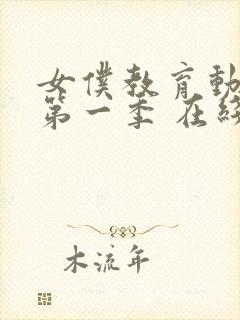 女僕教育動
第一季 在線
木流年